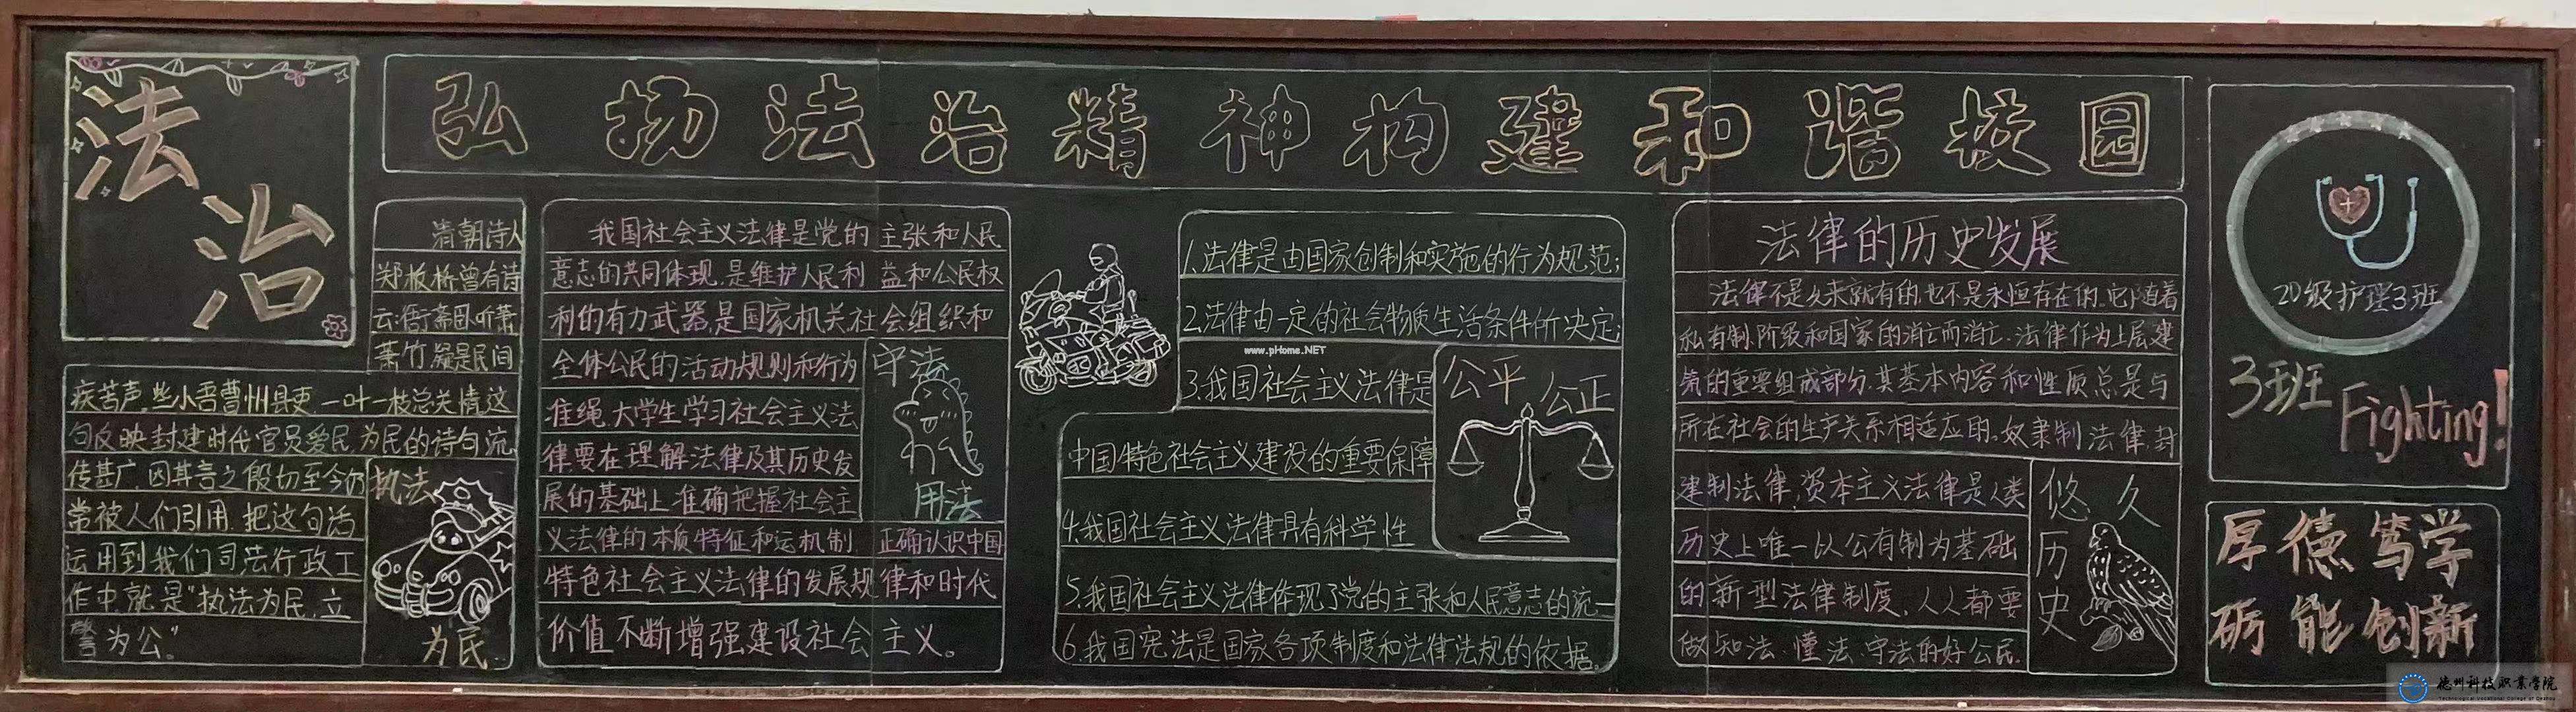 法
治
弘扬法治精神构建和谐校园
清朝诗人
郑板桥曾有诗
云:衙斋卧听萧
萧竹,疑是民间
疾苦声,些小吾曹州县吏,一叶一枝总关情,这
句反映封建时代官员爱民,为民的诗句流
传甚广,因其言之殷切至今仍
常被人们引用,把这句话
运用到我们司法行政工
作中,就是"执法为民,立
警为公。"
执法
为民
我国社会主义法律是党的主张和人民
意志的共同体现,是维护人民利益和公民权
利的有力武器,是国家机关,社会组织和
全体公民的活动规则和行为
准绳,大学生学习社会主义法
律要在理解法律及其历史发
展的基础上准确把握社会主
义法律的本质特征和运机制,正确认识中国
特色社会主义法律的发展规律和时代
价值不断增强建设社会主义。
守法
用法
1.法律是由国家创制和实施的行为规范;
2.法律由一定的社会物质生活条件所决定;
www.pHome.NET
3.我国社会主义法律是
中国特色社会主义建设的重要保障
4.我国社会主义法律具有科学性
5.我国社会主义法律体现了党的主张和人民意志的统一
6.我国宪法是国家各项制度和法律法规的依据。
公平
公正
法律的历史发展
法律不是久来就有的,也不是永恒存在的。它随着
私有制、阶级和国家的消亡而消亡。法律作为上层建
筑的重要组成部分,其基本内容和性质总是与
所在社会的生产关系相适应的。奴隶制法律,封
建制法律,资本主义法律是人类
历史上唯一以公有制为基础
的新型法律制度,人人都要
做知法、懂法、守法的好公民
悠久
历
史
20级护理3班
3班
Fighting!
厚德笃学
砺能创新
德州科技职业学院